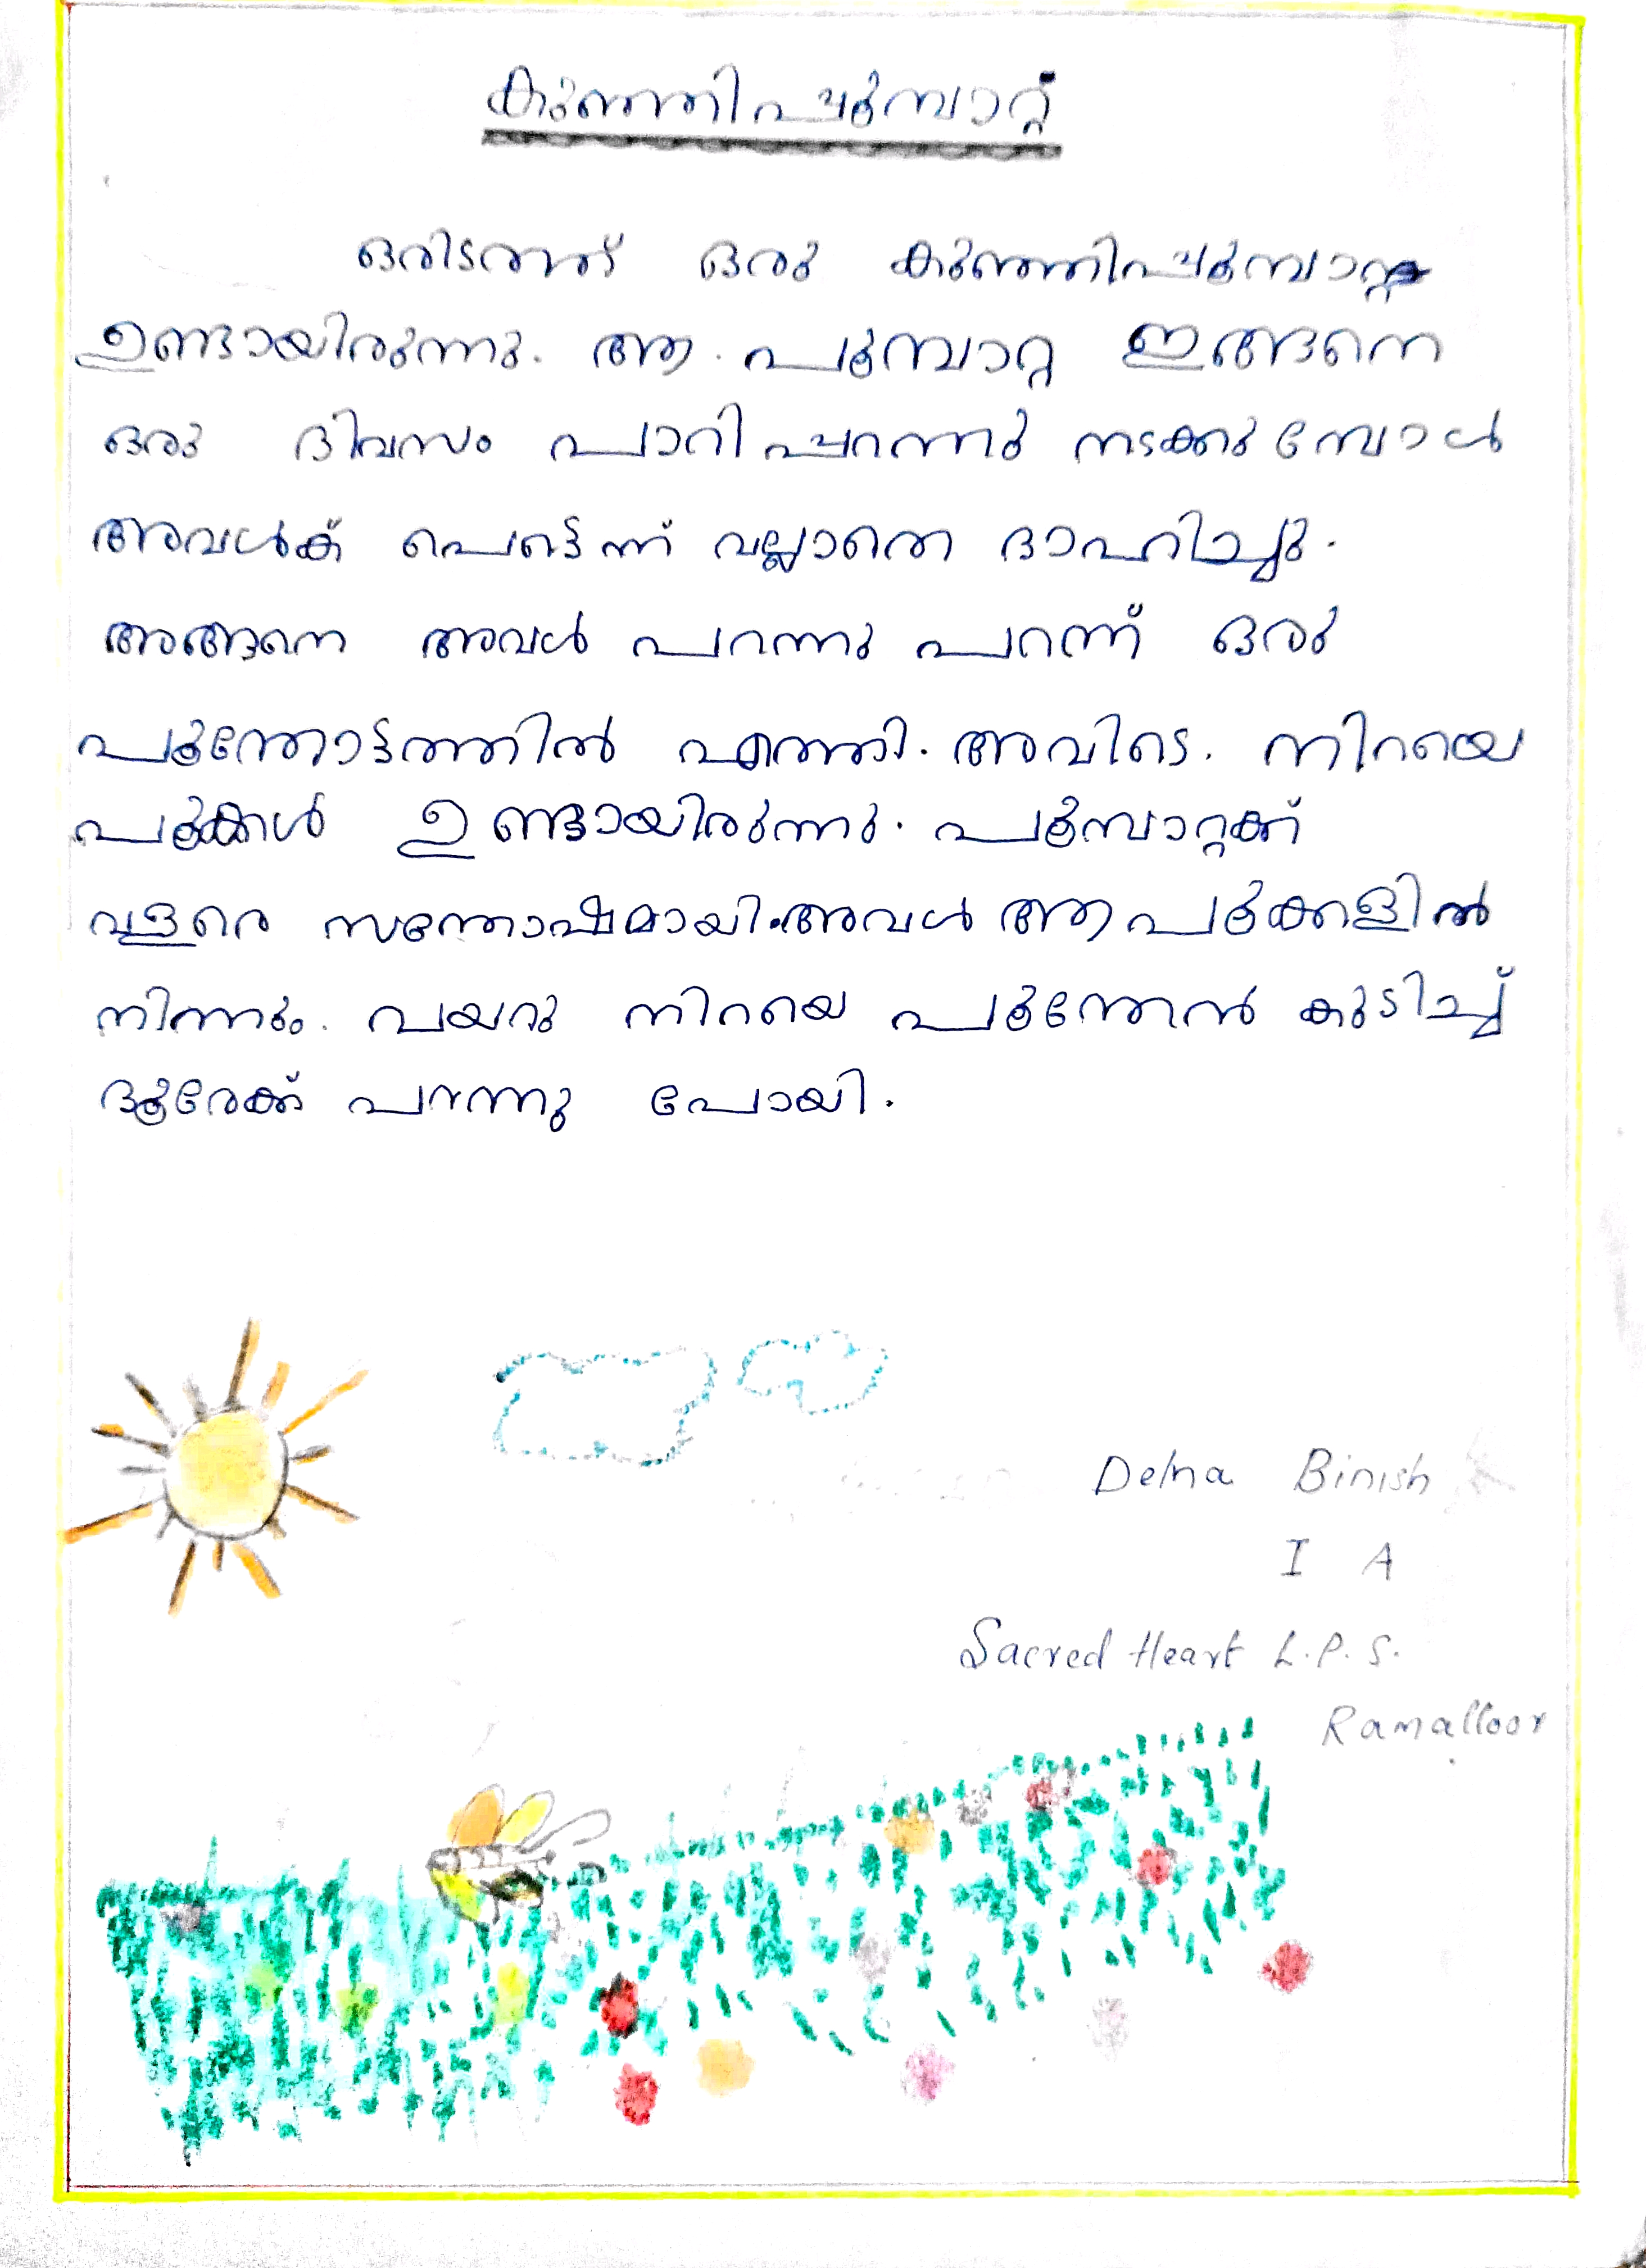 കുഞ്ഞിപ്പൂമ്പാറ്റ്
ഒരിടത്ത് ഒരു കുഞ്ഞിപ്പൂമ്പാറ്റ
ഉണ്ടായിരുന്നു. ആ. പൂമ്പാറ്റ ഇങ്ങനെ
ഒരു ദിവസം പാറിപ്പറന്നു നടക്കുമ്പോൾ
അവൾക് പെട്ടെന്ന് വല്ലാതെ ദാഹിച്ചു.
അങ്ങനെ അവൾ പറന്നു പറന്ന് ഒരു
പൂന്തോട്ടത്തിൽ എത്തി. അവിടെ. നിറയെ
പൂക്കൾ ഉണ്ടായിരുന്നു. പൂമ്പാറ്റക്ക്
വളരെ സന്തോഷമായി. അവൾ ആ പൂക്കളിൽ
നിന്നും. വയറു നിറയെ പൂന്തേൻ കുടിച്ച്
ദൂരേക്ക് പറന്നു പോയി.
Delna Binish
I A
Sacred Heart L.P.S.
Ramalloor